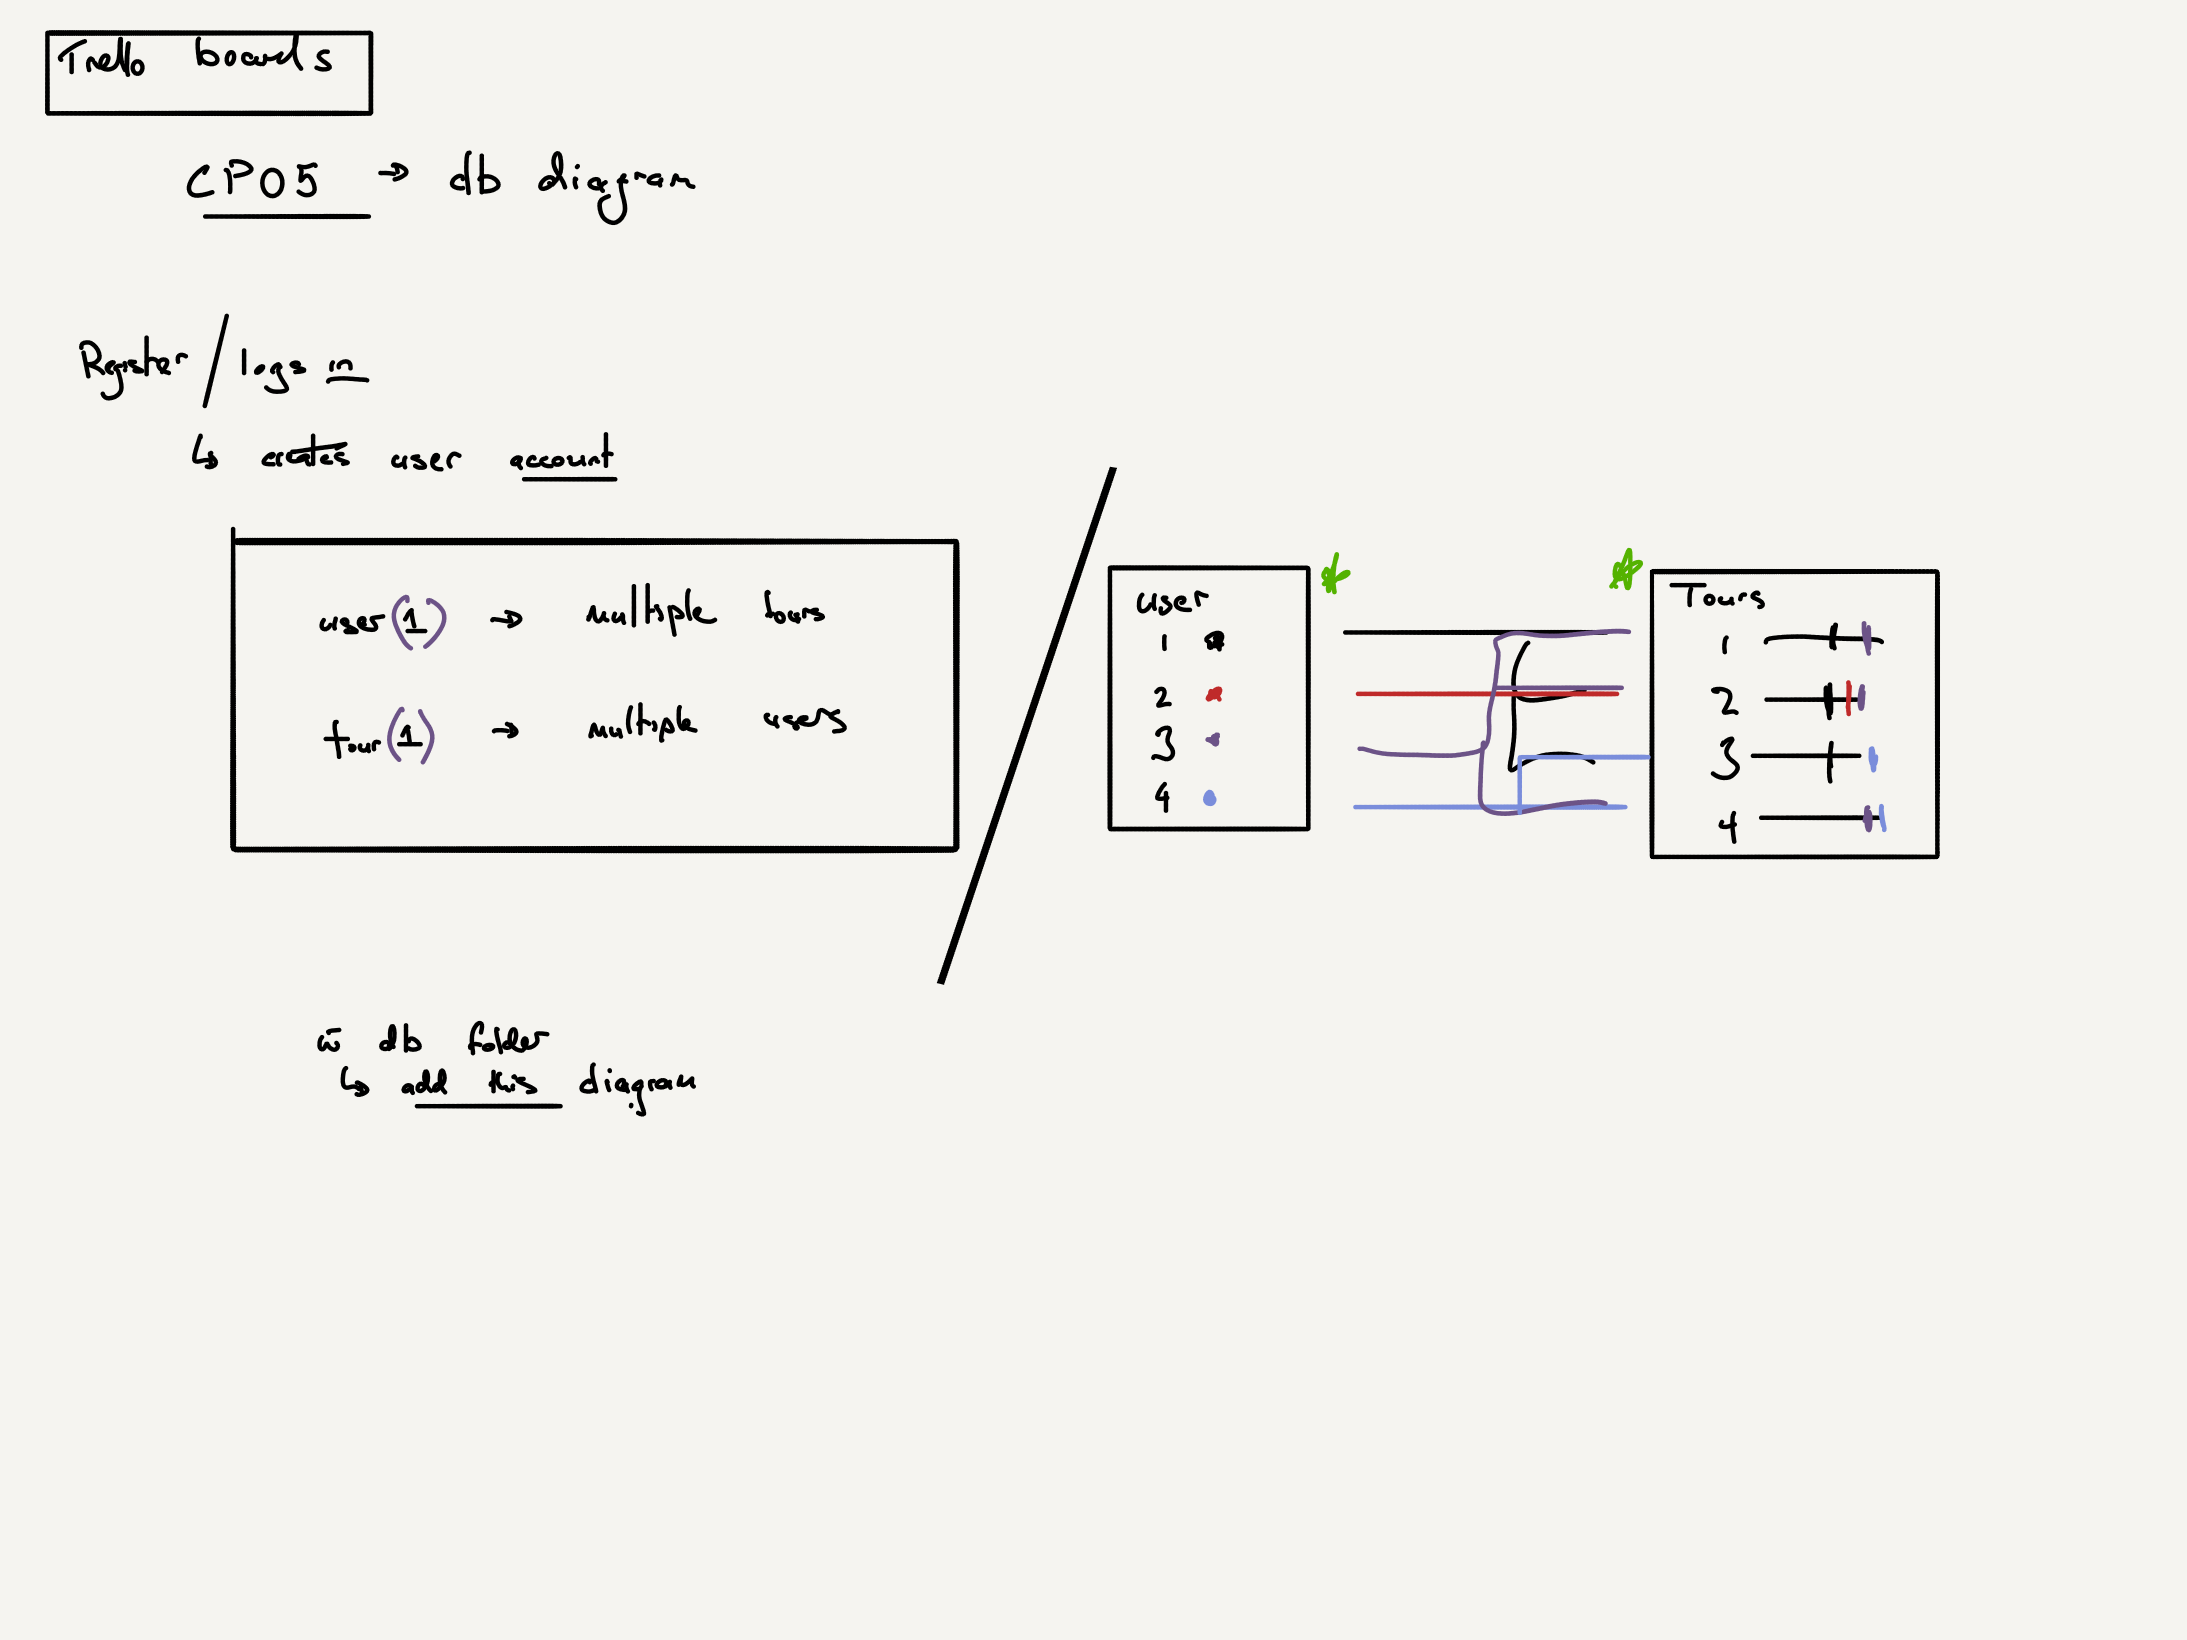 Trello boards
CP05 → db diagram
Register / logs in
↳ creates user account
user (1) → multiple tours
tour (1) → multiple users
User
1
2
3
4
Tours
1
2
3
4
db folder
↳ add this diagram